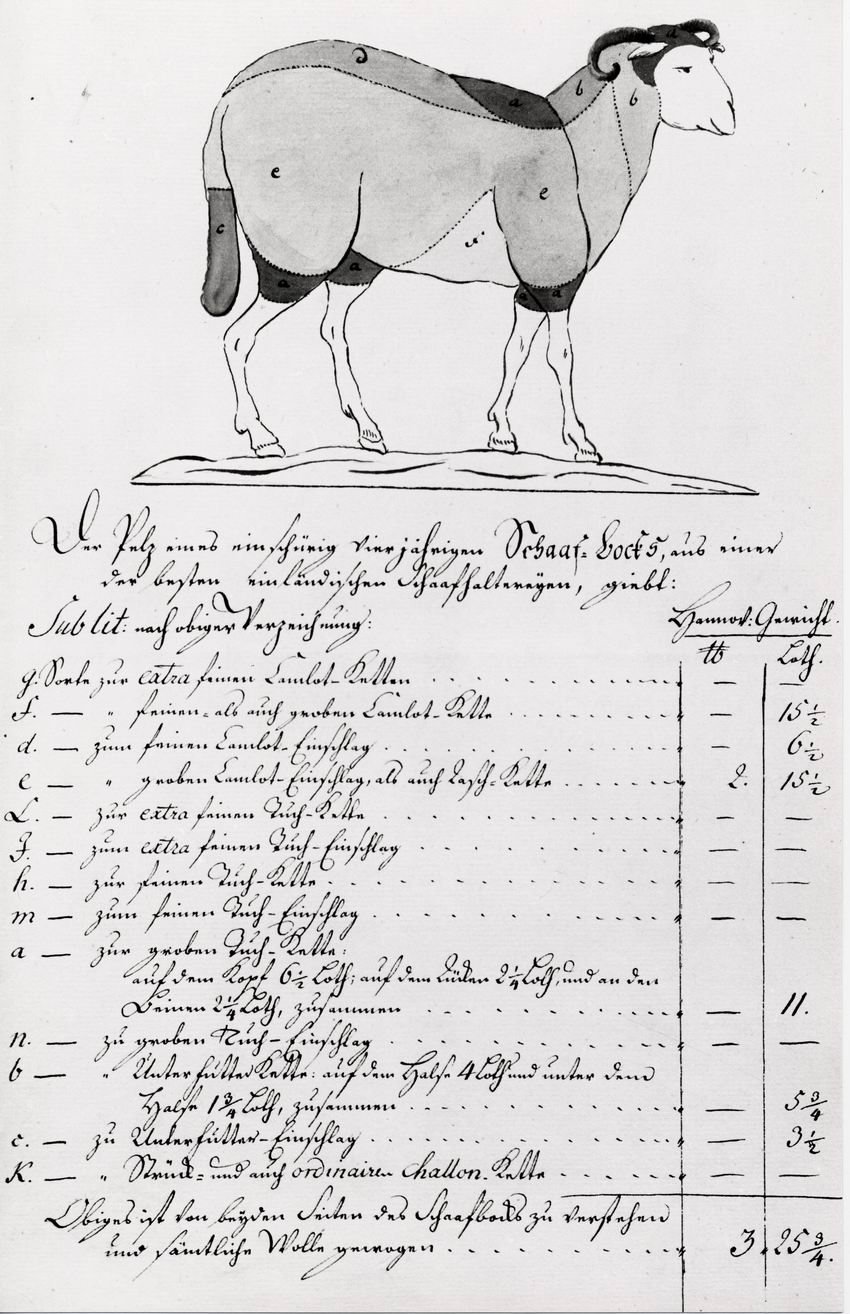 d
a
b
b
a
e
e
c
f
a
a
a
a
Der Pelz eines einschürig vierjährigen Schaaf-Bocks, aus einer
der besten einländischen Schaafhaltereyen, giebt:
Sub lit: nach obiger Verzeichnung:
Hannov: Gewicht.
℔ Loth.
g. Sorte zur extra feinen Camlot-Ketten — —
f. — " feinen- als auch groben Camlot-Kette — 15 1/2
d. — zum feinen Camlot-Einschlag — 6 1/2
e — " groben Camlot-Einschlag, als auch Rasch-Kette 2. 15 1/2
L. — zur extra feinen Tuch-Kette — —
J. — zum extra feinen Tuch-Einschlag — —
h. — zur feinen Tuch-Kette — —
m — zum feinen Tuch-Einschlag — —
a — zur groben Tuch-Kette:
auf dem Kopf 6 1/2 Loth; auf dem Rücken 2 1/4 Loth, und an den
Beinen 2 1/4 Loth, zusammen — 11.
n. — zu groben Tuch-Einschlag — —
b — " Unterfutter Kette: auf dem Halse 4 Loth und unter dem
Halse 1 3/4 Loth, zusammen — 5 3/4
c. — zu Unterfutter-Einschlag — 3 1/2
K. — " Strück- und auch ordinairen Challon-Kette — —
Obiges ist von beyden Seiten des Schaafbocks zu verstehen
und sämtliche Wolle gewogen 3 25 3/4.